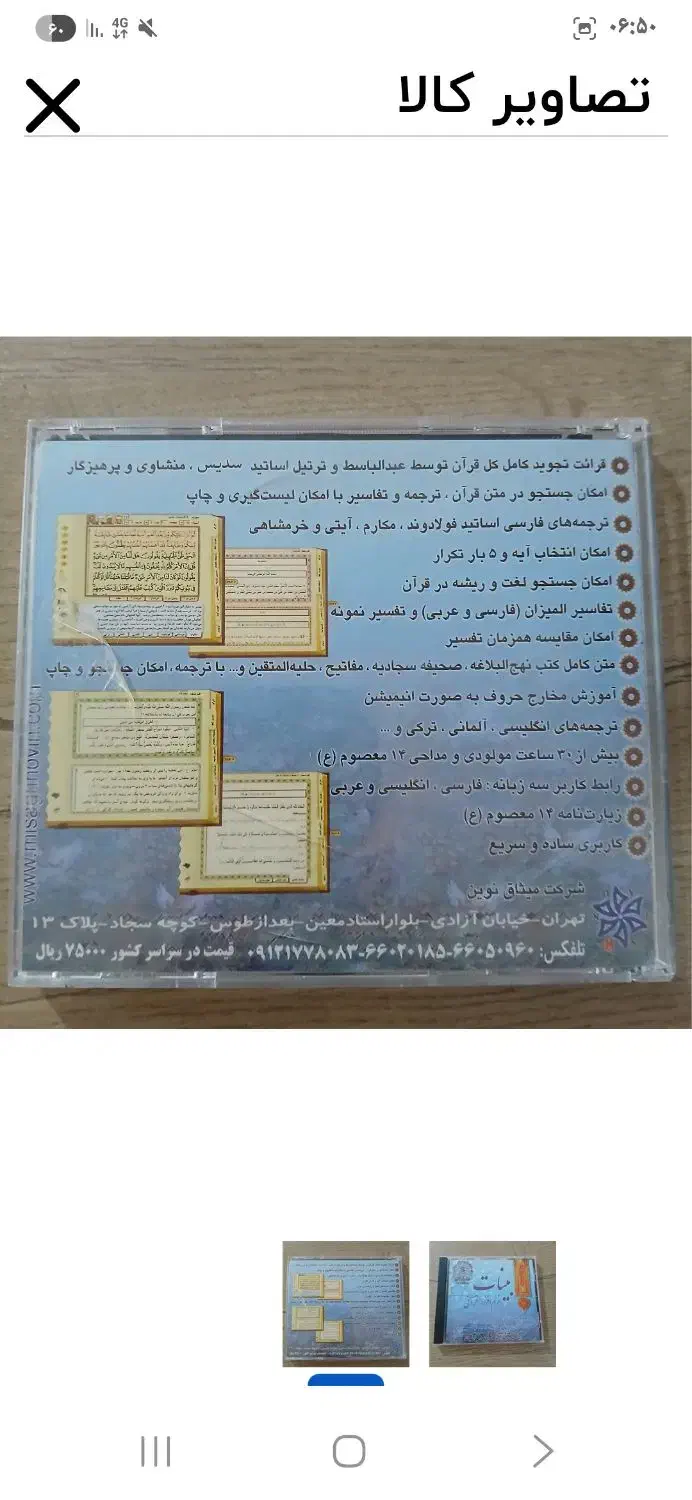 ۶۰ 4G ۰۶:۵۰
تصاویر کالا
قرائت تجوید کامل کل قرآن توسط عبدالباسط و ترتیل اساتید سدیس ، منشاوی و پرهیزگار
امکان جستجو در متن قرآن ، ترجمه و تفاسیر با امکان لیست‌گیری و چاپ
ترجمه‌های فارسی اساتید فولادوند ، مکارم ، آیتی و خرمشاهی
امکان انتخاب آیه و ۵ بار تکرار
امکان جستجو لغت و ریشه در قرآن
تفاسیر المیزان (فارسی و عربی) و تفسیر نمونه
امکان مقایسه همزمان تفسیر
متن کامل کتب نهج‌البلاغه، صحیفه سجادیه، مفاتیح ، حلیه‌المتقین و... با ترجمه، امکان جستجو و چاپ
آموزش مخارج حروف به صورت انیمیشن
ترجمه‌های انگلیسی ، آلمانی ، ترکی و ...
بیش از ۳۰ ساعت مولودی و مداحی ۱۴ معصوم (ع)
رابط کاربر سه زبانه : فارسی ، انگلیسی و عربی
زیارت‌نامه ۱۴ معصوم (ع)
کاربری ساده و سریع
شرکت میثاق نوین
تهران-خیابان آزادی-بلوار استاد معین-بعد از طوس-کوچه سجاد-پلاک ۱۳
تلفکس: ۶۶۰۵۰۹۶۰-۶۶۰۲۰۱۸۵-۰۹۱۲۱۷۷۸۰۸۳ قیمت در سراسر کشور ۷۵۰۰۰ ریال
بینات